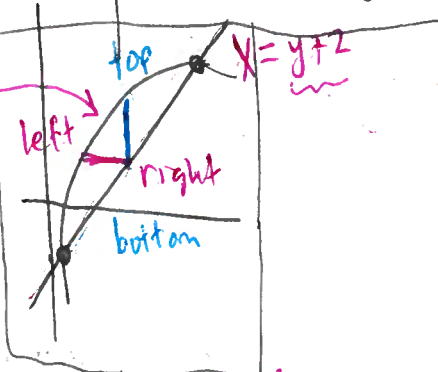 top
x = y+2
left
right
bottom